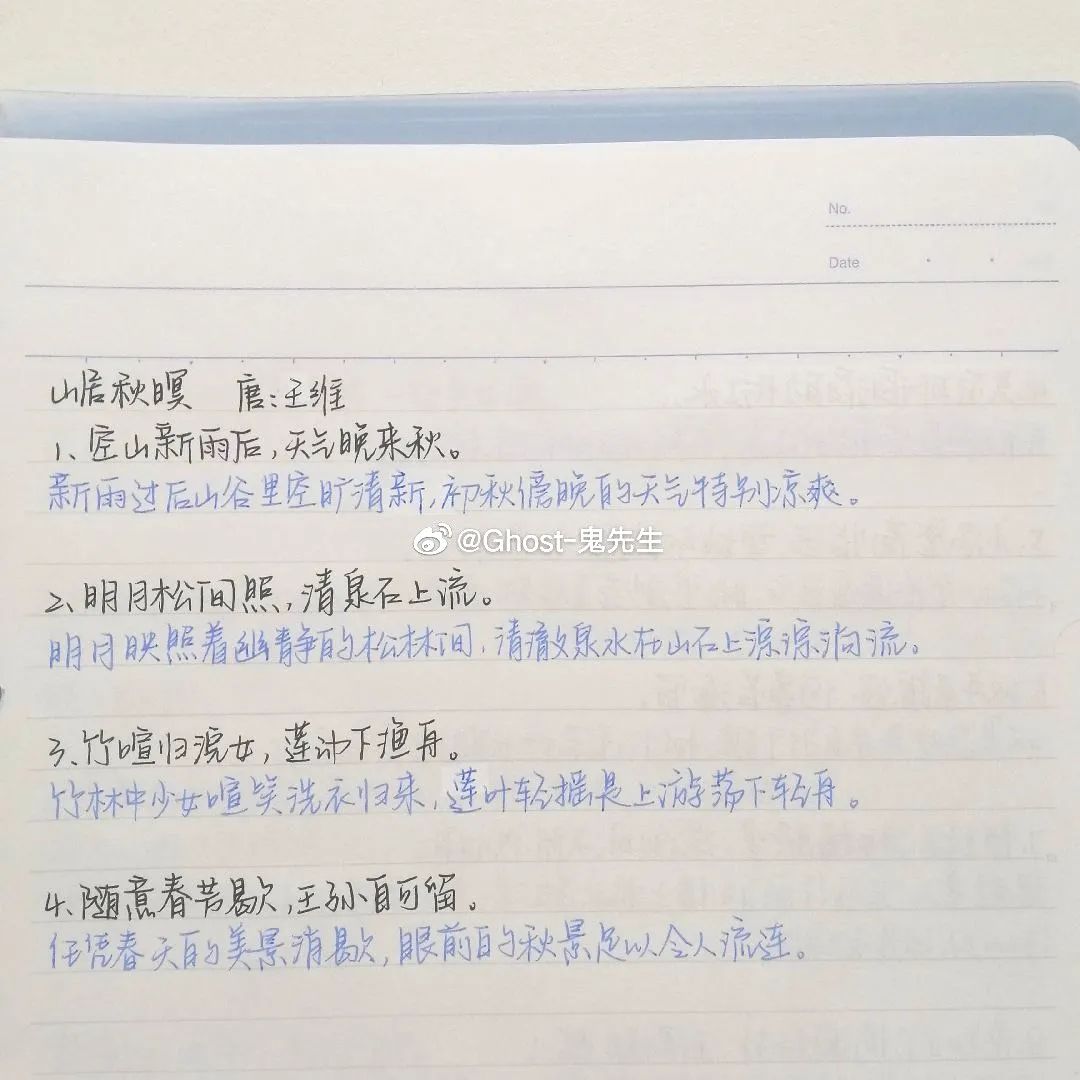 No.
Date
山居秋暝 唐:王维
1、空山新雨后,天气晚来秋。
新雨过后山谷里空旷清新,初秋傍晚的天气特别凉爽。
@Ghost-鬼先生
2、明月松间照,清泉石上流。
明月映照着幽静的松林间,清澈泉水在山石上淙淙淌流。
3、竹喧归浣女,莲动下渔舟。
竹林中少女喧笑洗衣归来,莲叶轻摇是上游荡下轻舟。
4、随意春芳歇,王孙自可留。
任凭春天的美景消歇,眼前的秋景足以令人流连。